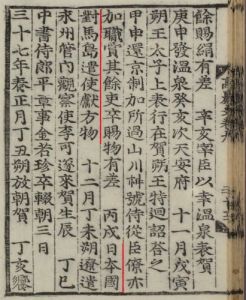 餘賜絹有差 辛亥宰臣以幸溫泉表賀
庚申發溫泉癸亥次天安府 十一月戊寅
朔王太子上表行在賀朔王特迴詔答之
甲申還京制加所過山川神號侍從臣僚亦
加職賞其餘吏卒賜物有差 丙戌日本國
對馬島遣使獻方物 十二月丁未朔遼遣
永州管內觀察使李可遂來賀生辰 丁巳
中書侍郎平章事金若珍卒輟朝三日
三十七年春正月丁丑朔放朝賀 丁亥饗